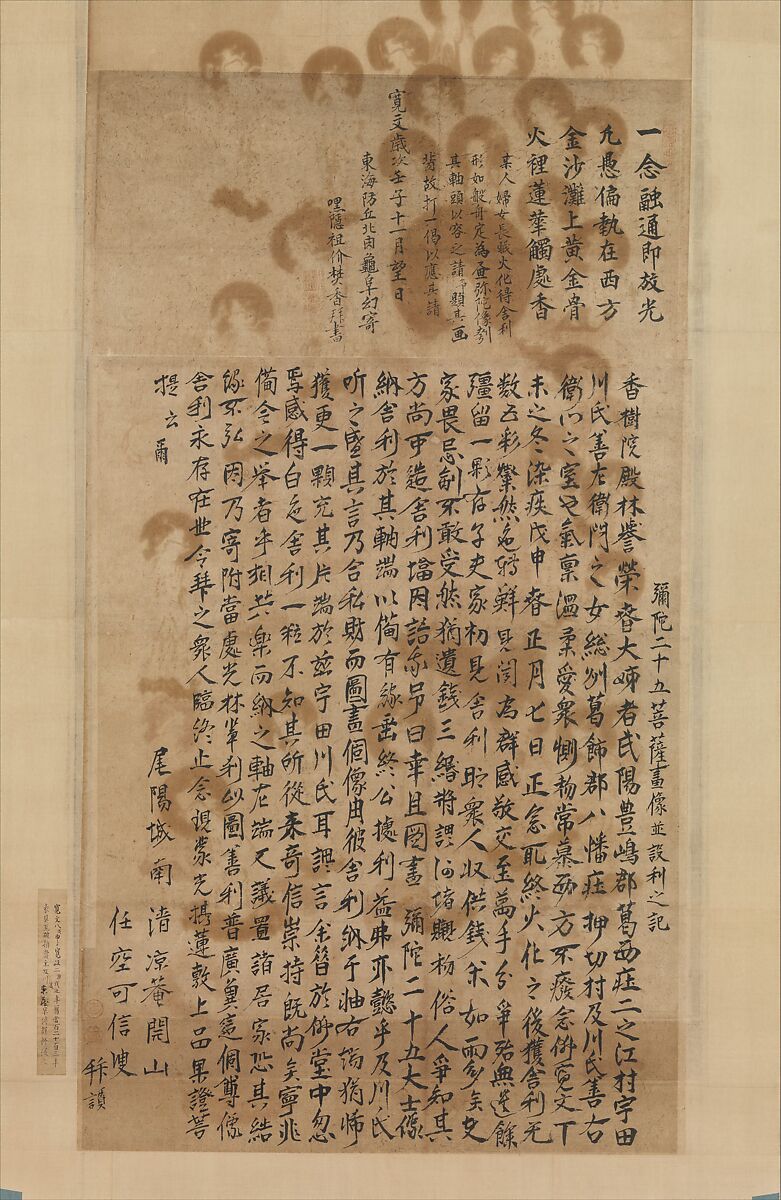 一念融通即放光
凢愚偏執在西方
金沙灘上黄金骨
火裡蓮華觸處香
某人婦女長蔵火化得舎利
形如般舟定為画弥陀像
其軸頭以容之請題其画
背故打一偈以應其請
寛文歳次壬子十一月望日
東海防丘北肉龜阜幻寄
嘿隱祖价焚香拜書
彌陀二十五菩薩畫像並設利之記
香樹院殿林譽榮春大姉者武陽豊嶋郡葛西庄二之江村宇田
川氏善左衛門之女総州葛飾郡八幡庄押切村及川氏善右
衛門之室也氣禀溫柔愛衆惻物常慕西方不癈念佛寛文丁
未之冬染疾戊申春正月七日正念死終火化之後獲舎利无
数五彩粲然色轉鮮見聞為群感敬交至萬手分爭殆無遺餘
彊留一顆存子夫家初見舎利時衆人収供錢米如雨多矣丈
家畏忌制不敢受然猶遺錢三緡將謂何堵與物俗人爭知其
方尚可造舎利塔因詰家予曰幸且圖畫彌陀二十五大士像
納舎利於其軸端以備有縁垂終公據利益弗亦懿乎及川氏
听之盛其言乃合私財而圖畫個像由彼舎利納于軸右端猶怖
獲更一顆充其片端於茲宇田川氏耳謂言余昔於佛堂中忽
焉感得白色舎利一粒不知其所從来奇信崇持既尚矣寧非
備令之挙者乎相共樂而納之軸左端又議置諸居家恐其結
縁不弘因乃寄附當處光林輩利以圖善利普廣冀這個尊像
舎利永存在世令拜之衆人臨終止念現蒙光攜蓮敷上品果證菩
提云爾
尾陽城南清凉菴開山
任空可信叟
拜讃